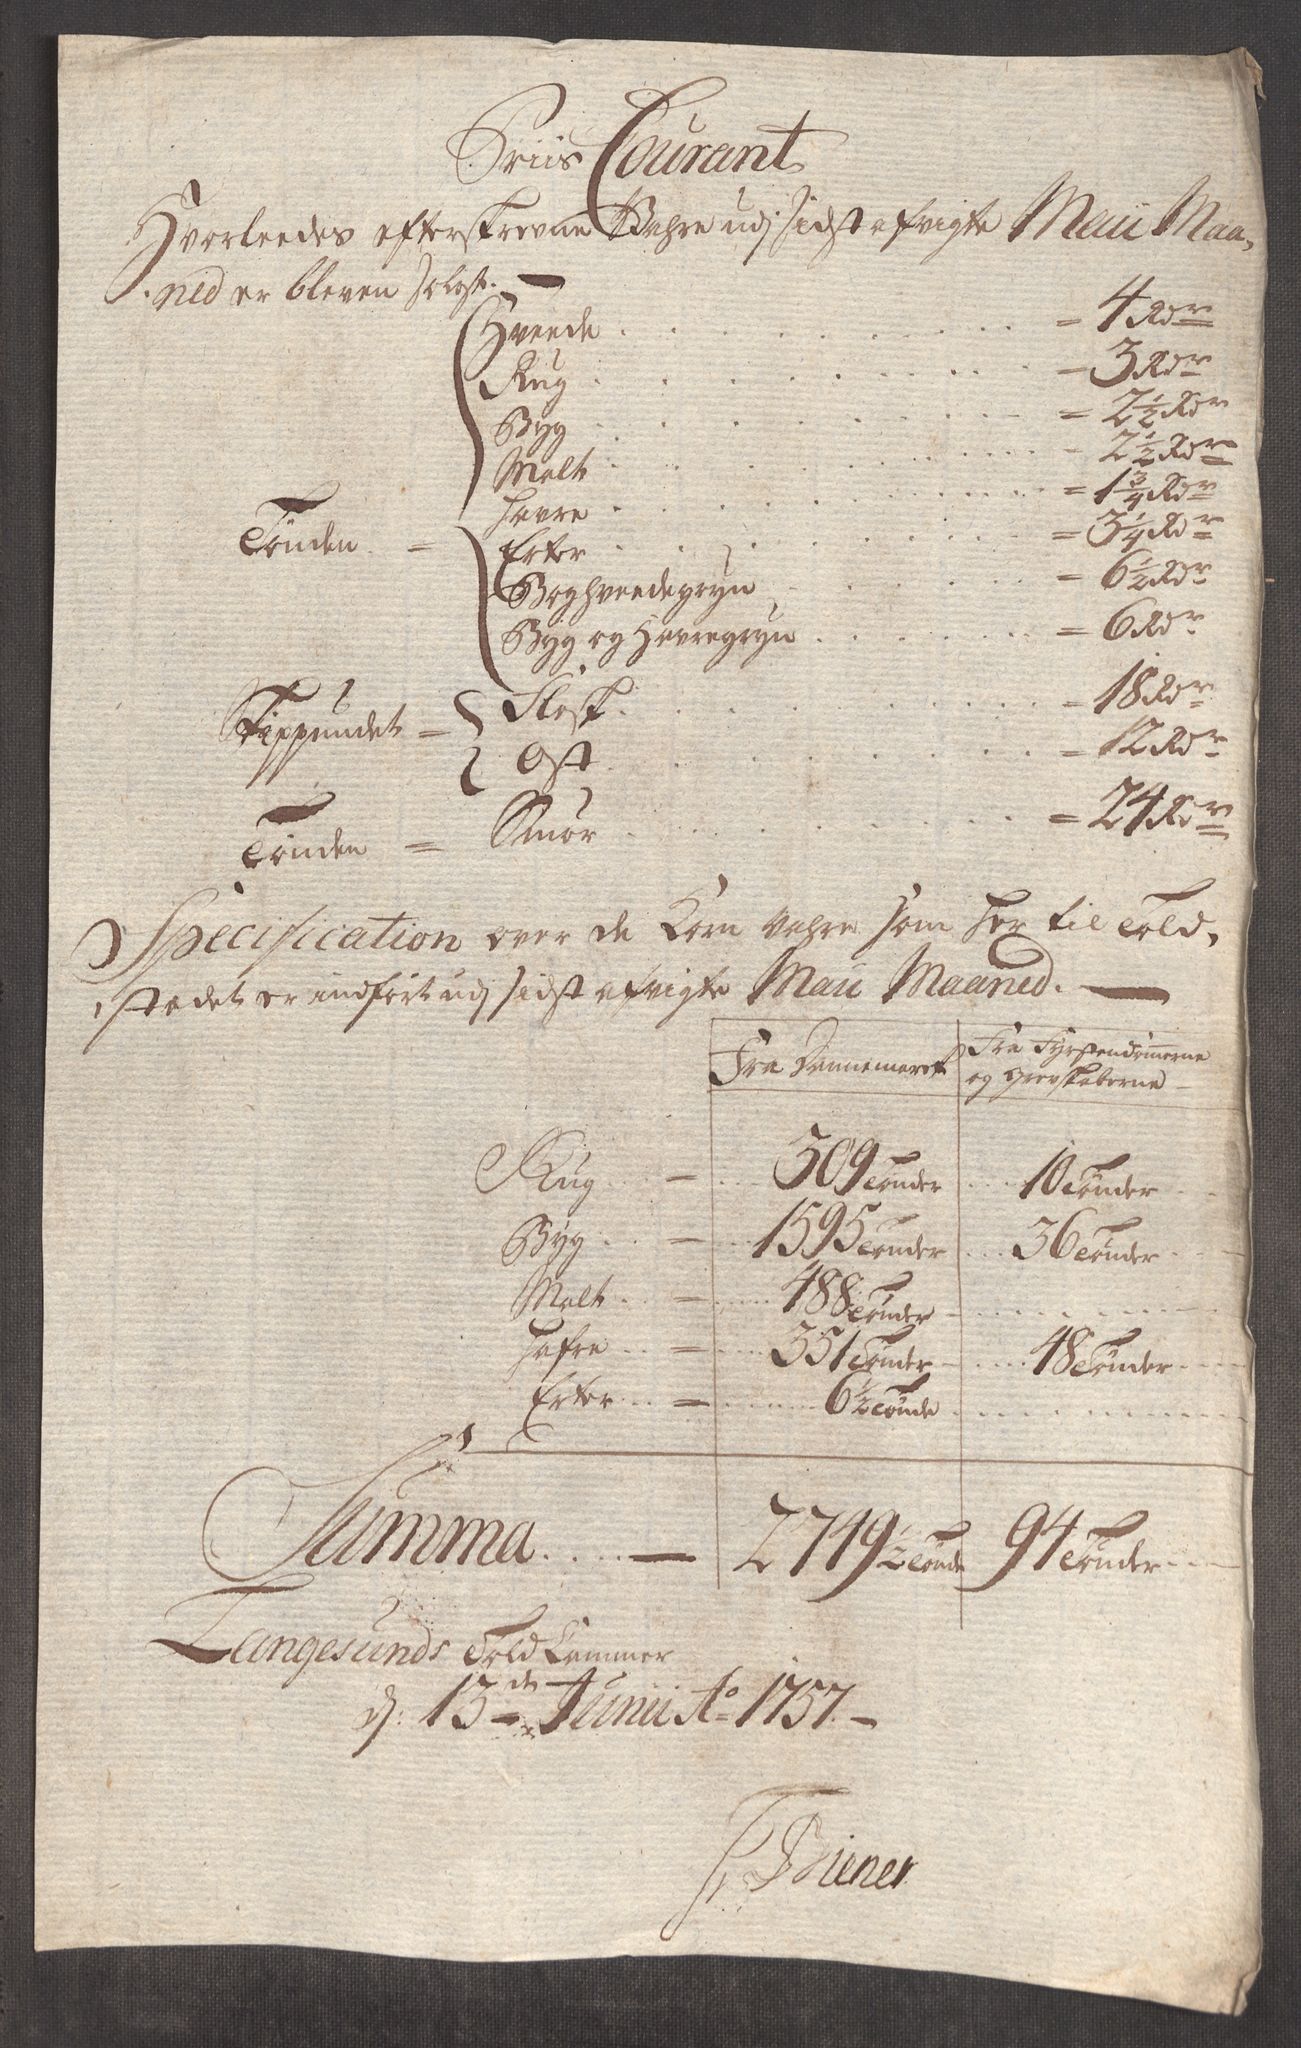 Priis Courant
Hvorleedes efterskrevne Vahre udj sidst afvigte Maii Maa-
ned er bleven solgt.
Hveede = 4 Rdr
Rug = 3 Rdr
Byg = 2 1/2 Rdr
Malt = 2 1/2 Rdr
Havre = 1 3/4 Rdr
Tønden = Erter = 3 1/4 Rdr
Boghveedegryn = 6 1/2 Rdr
Byg og Havregryn = 6 Rdr
Skippundet = Flesk = 18 Rdr
Ost = 12 Rdr
Tønden = Smør = 24 Rdr
Specification over de Korn Vahre som her til Told-
stædet er indført udj sidst afvigte Maii Maaned.
Fra Dannemark Fra Fyrstendømmerne
og Grevskaberne
Rug = 309 Tønder 10 Tønder
Byg = 1595 Tønder 36 Tønder
Malt = 488 Tønder
Hafre = 351 Tønder 48 Tønder
Erter = 6 1/2 Tønde
Summa 2749 1/2 Tønde 94 Tønder
Langesunds Told Cammer
d: 13de Junii Ao 1757.
Biener